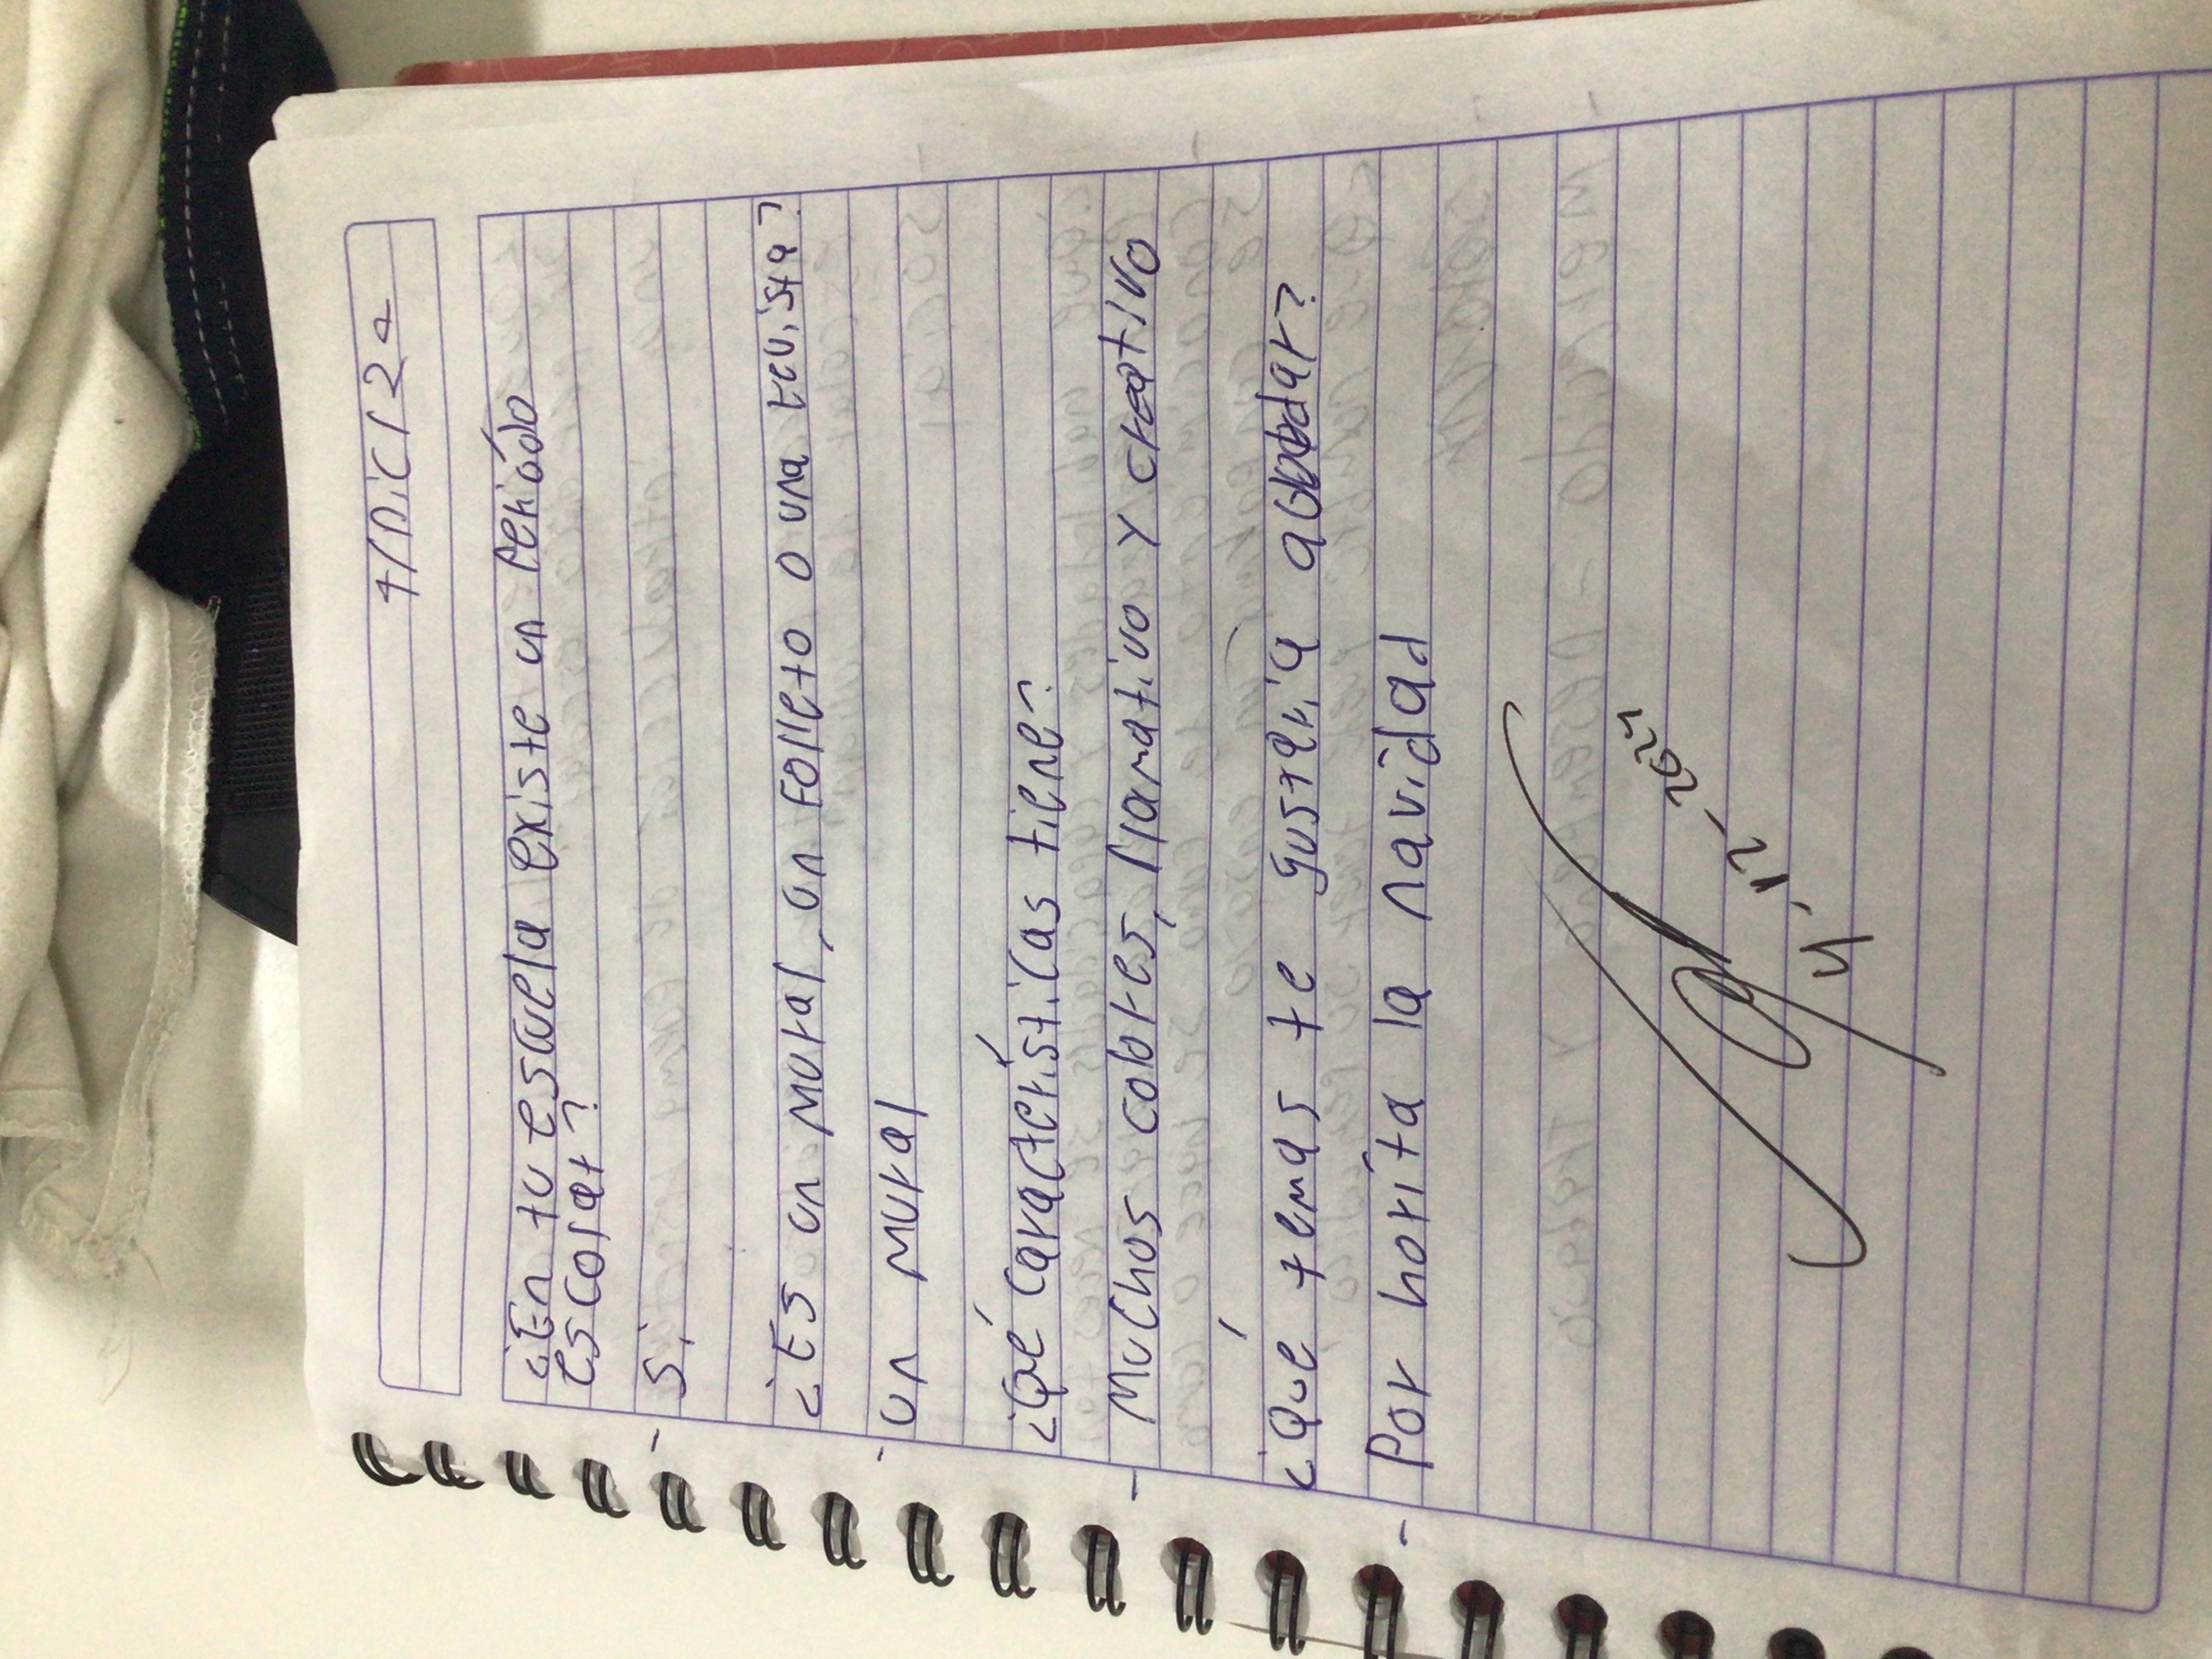 ¿En tu escuela existe un periódo
escolar?
- Si
¿Es un mural, un folleto o una revista?
- un mural
¿Qué características tiene?
- Muchos colores, llamativo y creativo
¿Qué temas te gustaría abordar?
- Por horita la navidad
4, 12, 2024